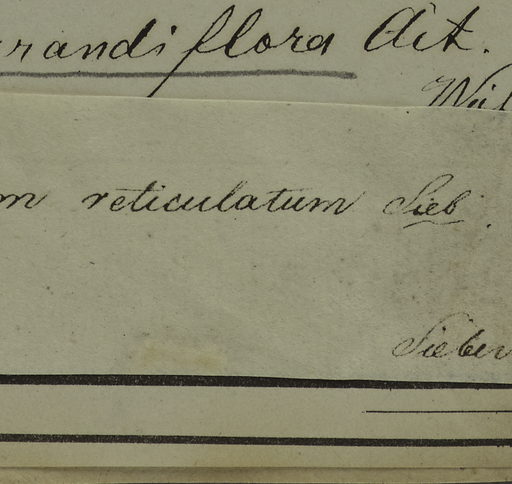 randiflora Ait.
Wil
m reticulatum Sieb.
Sieber